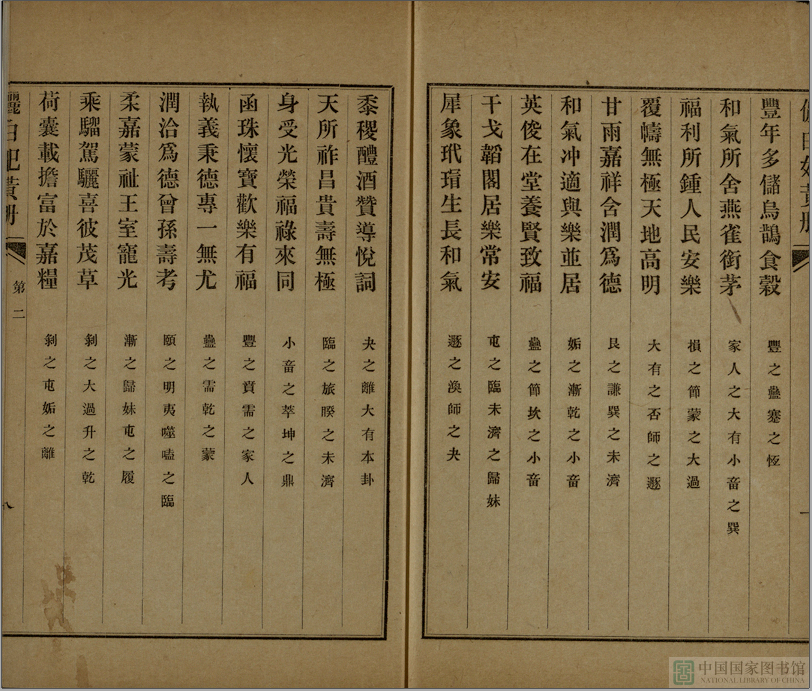 豐年多儲烏鵲食穀 豐之蠱蹇之恆
和氣所舍燕雀銜茅 家人之大有小畜之巽
福利所鍾人民安樂 損之節蒙之大過
覆幬無極天地高明 大有之否師之遯
甘雨嘉祥含潤為德 艮之謙巽之未濟
和氣冲適與樂並居 姤之漸乾之小畜
英俊在堂養賢致福 蠱之節坎之小畜
干戈韜閣居樂常安 屯之臨未濟之歸妹
犀象玳瑁生長和氣 遯之渙師之夬
黍稷醴酒贊導悅詞 夬之離大有本卦
天所祚昌貴壽無極 臨之旅睽之未濟
身受光榮福祿來同 小畜之萃坤之鼎
函珠懷寶歡樂有福 豐之賁需之家人
執義秉德專一無尤 蠱之需乾之蒙
潤洽爲德曾孫壽考 頤之明夷噬嗑之臨
柔嘉蒙祉王室寵光 漸之歸妹屯之履
乘騮駕驪喜彼茂草 剝之大過升之乾
荷囊載擔富於嘉糧 剝之屯姤之離
第二
八
中国国家图书馆
NATIONAL LIBRARY OF CHINA